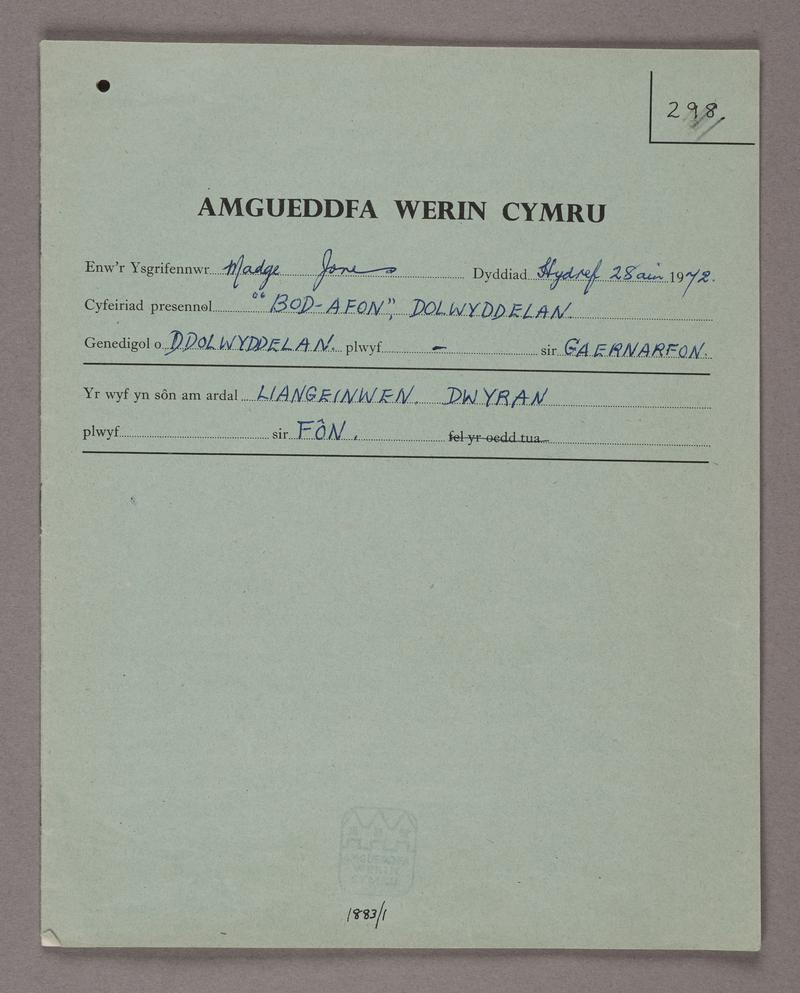 298.
AMGUEDDFA WERIN CYMRU
Enw'r Ysgrifennwr Madge Jones Dyddiad Hydref 28ain 1972.
Cyfeiriad presennol "BOD-AFON", DOLWYDDELAN.
Genedigol o DDOLWYDDELAN. plwyf - sir GAERNARFON.
Yr wyf yn sôn am ardal LLANGEINWEN. DWYRAN
plwyf sir FÔN. fel yr oedd tua
AMGUEDDFA
WERIN
CYMRU
1883/1